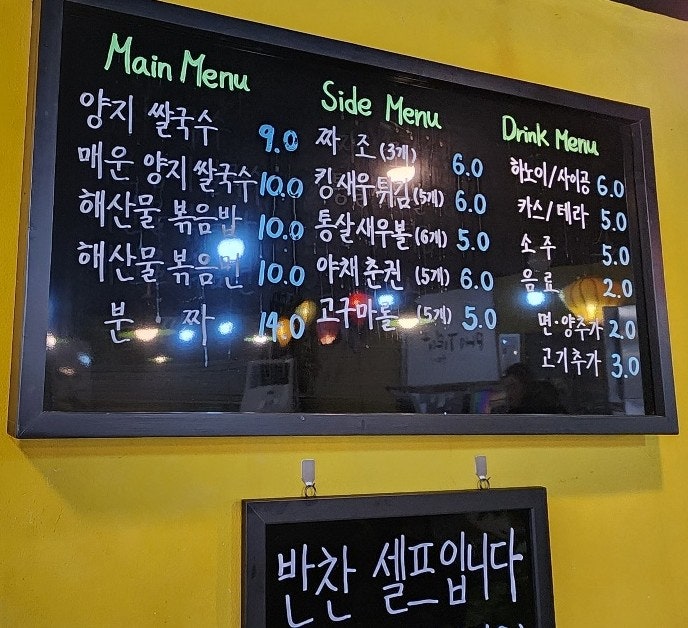 Main Menu
양지 쌀국수 9.0
매운 양지 쌀국수 10.0
해산물 볶음밥 10.0
해산물 볶음면 10.0
분 짜 14.0
Side Menu
짜 조 (3개) 6.0
킹새우튀김 (5개) 6.0
통살새우볼 (6개) 5.0
야채춘권 (5개) 6.0
고구마롤 (5개) 5.0
Drink Menu
하노이/사이공 6.0
카스/테라 5.0
소주 5.0
음료 2.0
면·양추가 2.0
고기추가 3.0
반찬 셀프입니다